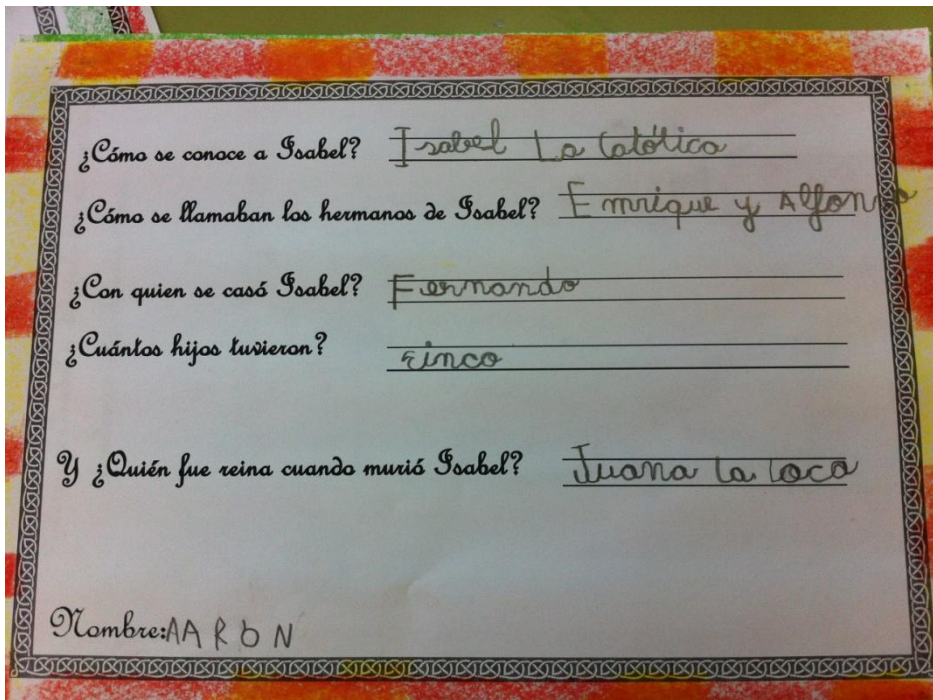 ¿Cómo se conoce a Isabel? Isabel La Católica
¿Cómo se llamaban los hermanos de Isabel? Emrique y Alfonso
¿Con quien se casó Isabel? Fernando
¿Cuántos hijos tuvieron? cinco
Y ¿Quién fue reina cuando murió Isabel? Juana la loca
Nombre: AARON